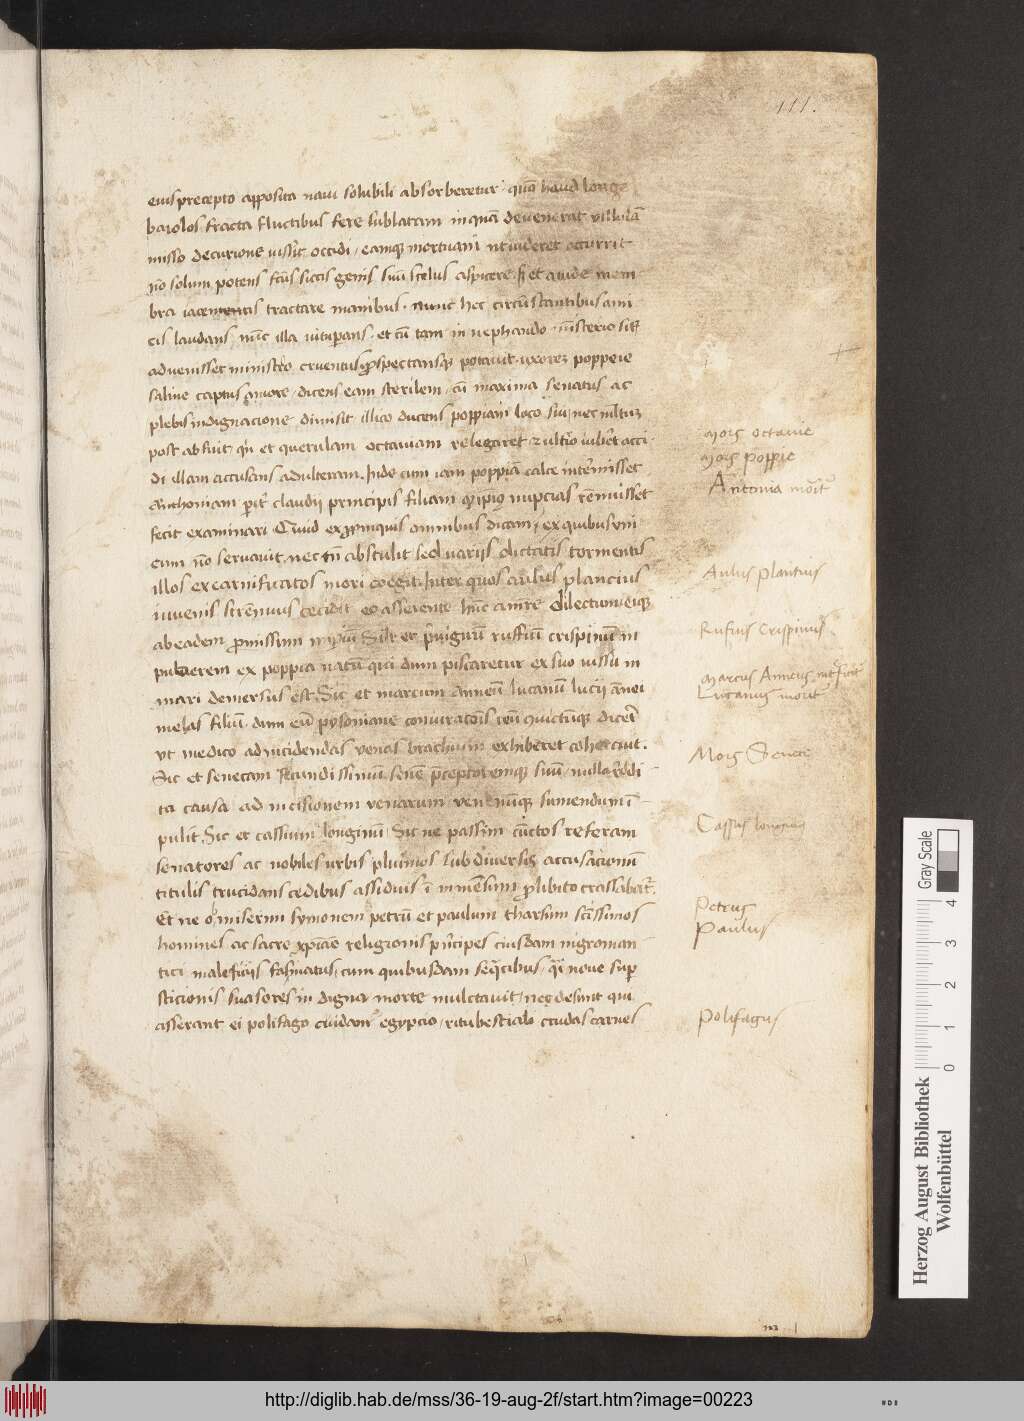 111.
eius precepto apposita naui solubili absorberetur quã haud longe
baiolos fracta fluctibus fere sublatam in quã devenerat villulã
misso decurione iussit occidi, eamque mortuam ut uideret accurrit
nõ solum potens siccis genis suũ scelus aspicere, et auide mem
bra iacentis tractare manibus. nunc hec circũstantibus ami
cis laudans, nũc illa vitupans. et cũ tam in nephando
advenisset ministro, cruentus potavit. uxorem poppeie
saline captus amore, dicens eam sterilem, cũ maxima senatus ac
plebis indignacione dimisit. illico ducens poppiam loco sui, nec multũ
post abfuit qñ et querulam octaviam relegaret & ultro iuberet occi
di illam accusans adulteram. Inde cum iam poppiã calce interimisset
Anthoniam claudij principis filiam nupcias renuisset
fecit examinari Quid ex propinquis omnibus dicam, ex quibus uni
cum nõ servauit, nec abstulit sed uarijs dictatis tormentis
illos excarnificatos mori coegit. Inter quos aulus plancius
iuvenis strẽnuus cecidit eo asserente dilectum, eique
ab eadem promissum et priuignũ ruffiũ crispinũ in
puberem ex poppia natũ qui dum piscaretur ex suo iussu in
mari demersus est. Sic et marcum Anneũ lucanũ lucij annei
melas filiũ. dum eũ pysoniane coniurationis dicerẽ
vt medico ad incidendas venas brachium exhiberet cohercuit.
Sic et senecam fecundissimũ, senẽ preceptoremque suũ, nulla reddi
ta causa ad incisionem venarum venenũque sumendum ĩ
pulit. Sic et cassium longinũ. Sic ne passim cũctos referam
senatores ac nobiles urbis plurimos sub diversis accusacionũ
titulis trucidans cedibus assiduis ĩ inmensum prolibito crassabatur.
Et ne omiserim symonem petrũ et paulum tharsum scissimos
homines ac sacre xpiane religionis principes cuiusdam nigroman
tici maleficiis fascinatus, cum quibusdam sequacibus, quasi nove supr
sticionis suasores indigna morte mulctauit, nec desunt qui
asserant ei polifago cuidam egypcio, ritu bestiali crudas carnes
Mors octavie
Mors poppie
Antonia morit
Aulus Plantius
Rufius Crispinus
Marcus Anneus
Lucanus morit
Mors Senece
Cassius longinus
Petrus
Paulus
Polifagus
Herzog August Bibliothek
Wolfenbüttel
0 1 2 3 4
Gray Scale
http://diglib.hab.de/mss/36-19-aug-2f/start.htm?image=00223